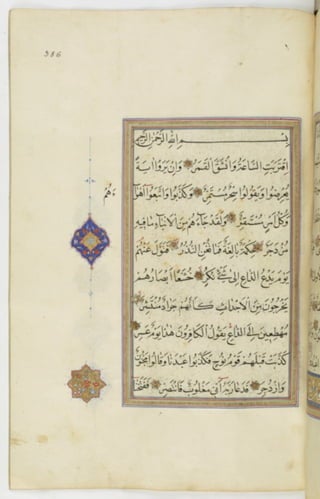 386
بسم الله الرحمن الرحيم
اقتربت الساعة وانشق القمر وان يروا اية
يعرضوا ويقولوا سحر مستمر وكذبوا واتبعوا اهوا
ءهم
وكل امر مستقر ولقد جاءهم من الانباء ما فيه
مزدجر حكمة بالغة فما تغن النذر فتول عنهم
يوم يدع الداع الى شئ نكر خشعا ابصارهم
يخرجون من الاجداث كانهم جراد منتشر
مهطعين الى الداع يقول الكافرون هذا يوم عسر
كذبت قبلهم قوم نوح فكذبوا عبدنا وقالوا مجنون
وازدجر فدعا ربه اني مغلوب فانتصر ففتحنا